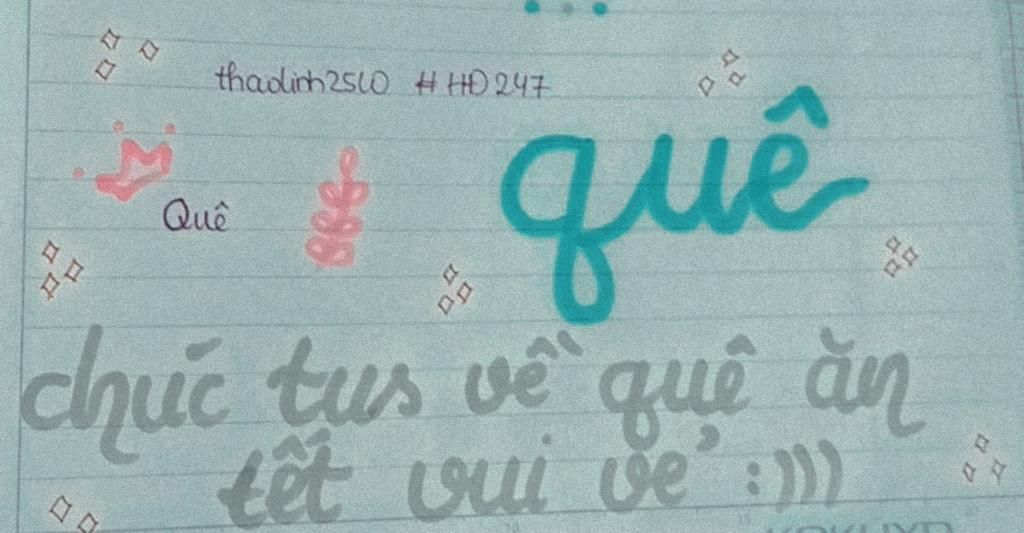 thaolinh2510 #HD247
quê
Quê
chúc tus về quê ăn
tết vui vẻ :)))